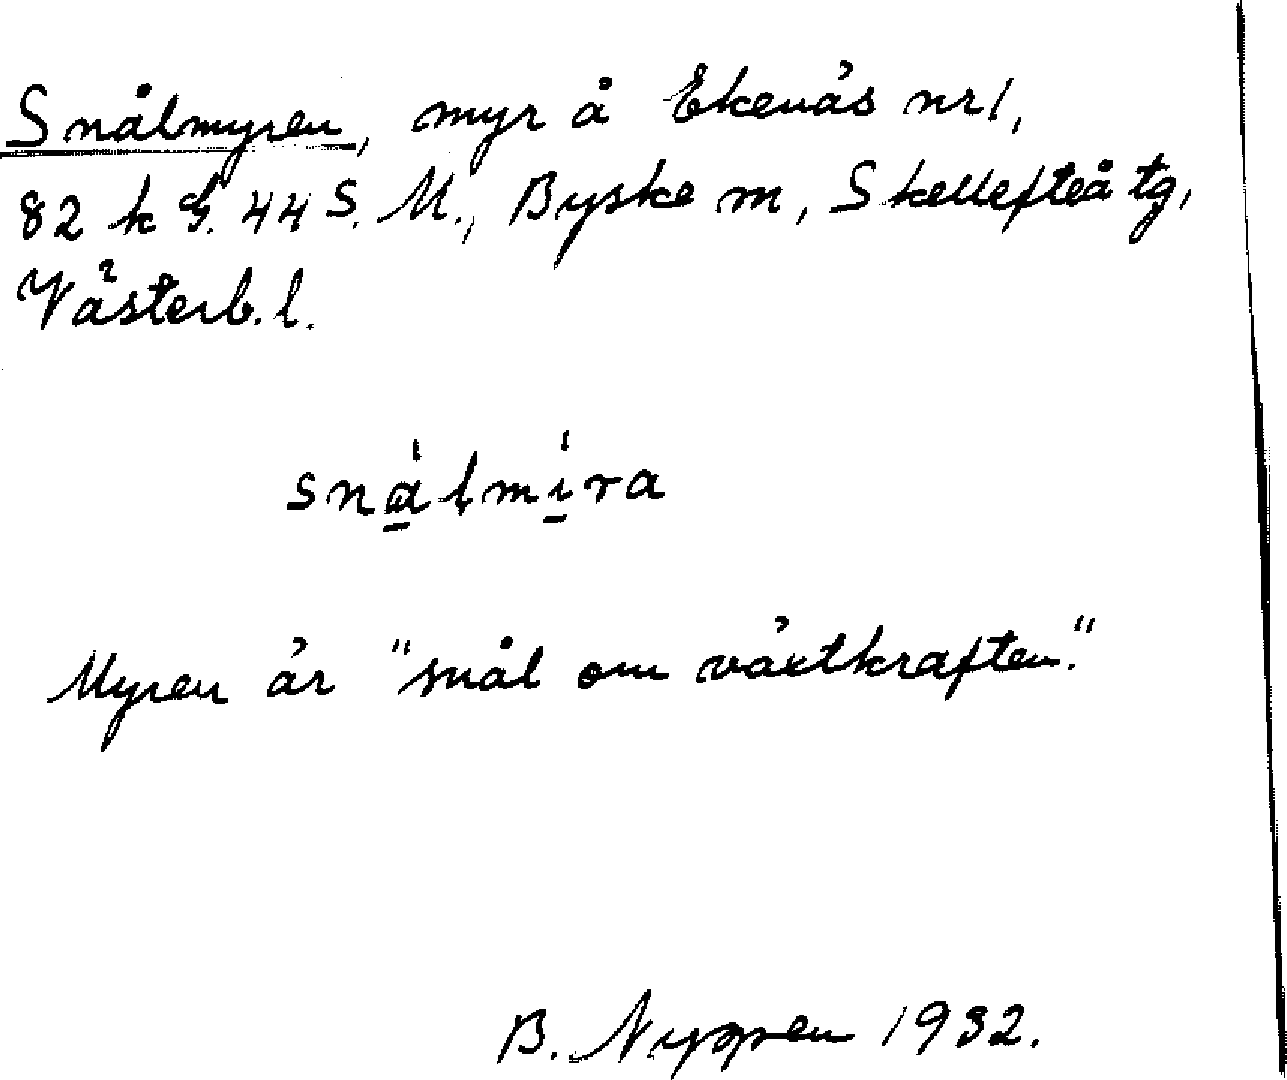 Snålmyren, myr å Ekenäs nr 1,
82 k G. 44 S. M., Byske sn, Skellefteå tg,
Västerb. l.
snålmira
Myren är "snål om växtkraften."
B. Nygren 1932.